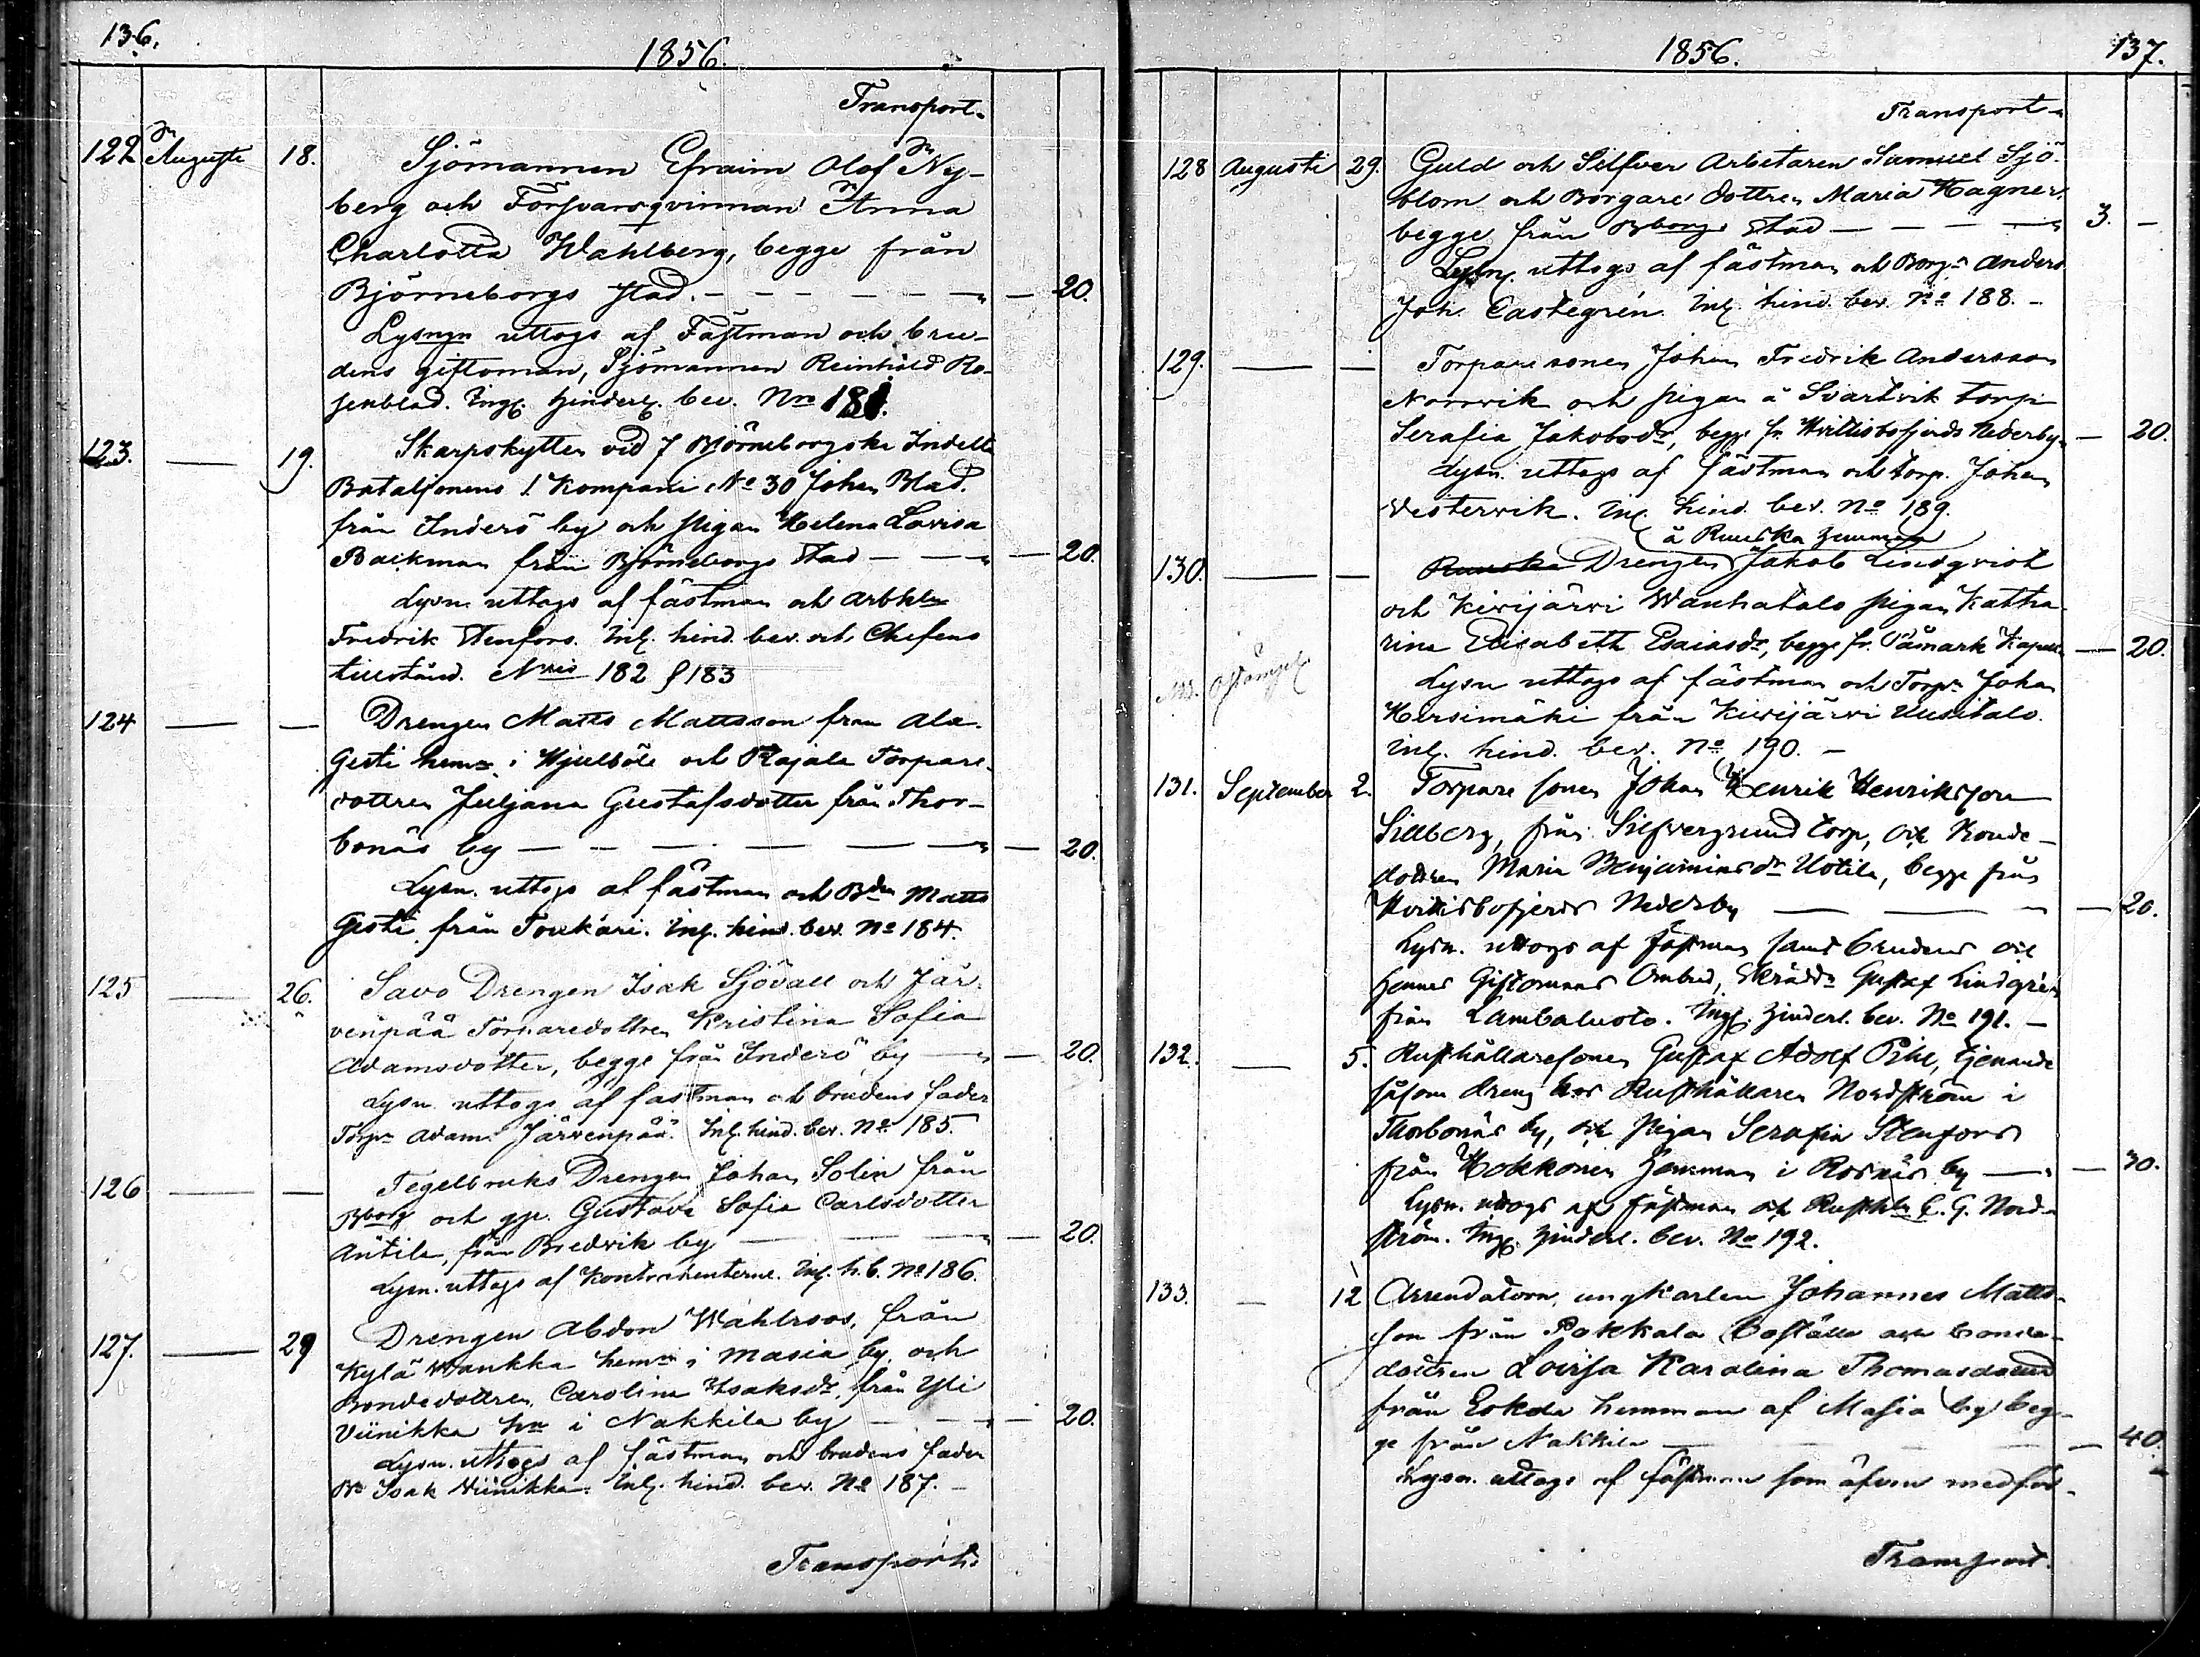 136.
1856.
Transport.
122 Augusti 18. Sjömannen Efraim Olof Ny-
berg och Försvarsqvinnan Anna
Charlotta Wahlberg, begge från
Björneborgs stad. 20.
Lysngn uttogs af Fästman och bru-
dens giftoman, Sjömannen Reinhold Ro-
senblad. Ingl. hinderl. bev. Nro 181.
123. 19. Skarpskytten vid 7 Björneborgska Indelta
Bataljonens 1. Kompani No 30 Johan Blad.
från Inderö by och pigan Helena Lovisa
Backman från Björneborgs stad 20.
Lysn uttogs af fästman och arbkln
Fredrik Stenfors. Inl. hind. bev. och Chefens
tillstånd. Nris 182 & 183
124 Drengen Matts Mattsson från Ala-
Gesti hemn i Hjulböle och Rajala Torpare-
dottren Juljana Gustafsdotter från Thor-
bonäs by 20.
Lysn. uttogs af fästman och Bdn Matts
Gesti från Toukari. Inl. hind. bev. No 184.
125 26. Savo Drengen Isak Sjövall och Jär-
venpää Torparedottren Kristina Sofia
Adamsdotter, begge från Inderö by 20.
Lysn uttogs af fästman och brudens fader
Torpn Adam Järvenpää. Inl. hind. bev. No 185.
126 Tegelbruks Drengen Johan Solin från
Bborg och gp. Gustava Sofia Carlsdotter
Antila, från Bredvik by 20.
Lysn. uttogs af Kontrahenterne. Inl. h. b. No 186.
127. 29 Drengen Abdon Wahlroos, från
Kylä Wankka hemn i Masia by och
Bondedottren Carolina Isaksdr, från Yli
Viinikka hn i Nakkila by 20.
Lysn. uttogs af fästman och brudens fader
Bn Isak Viinikka. Inl. hind. bev. No 187.
Transport.
1856.
137.
Transport
128 Augusti 29. Guld och Silfver Arbetaren Samuel Sjö-
blom och Borgare dottren Maria Hagner,
begge från Bborgs stad 3. -
Lysn. uttogs af fästman och Borgn Anders
Joh. Castegrén Inl. hind. bev. No 188.
129. Torparesonen Johan Fredrik Andersson
Norrvik och pigan å Svartvik torp
Serafia Jakobsdr, begge fr. Hvittisbofjerds Nederby 20.
Lysn. uttogs af fästman och torp. Johan
Vestervik. Inl. hind. bev. No 189.
å Ruuska hemman
130. Ruuska Drengen Jakob Lindqvist
och Kivijärvi Wanhatalo pigan Katha-
rina Elisabeth Esaiasdr, begge fr. Påmark Kapell 20.
Lysn uttogs af fästman och Torpn Johan
Hirsimäki från Kivijärvi Uusitalo.
Inl. hind. bev. No 190.
131. September 2. Torpare sonen Johan Henrik Henriksson
Sillberg, från Silfvergrund torp, och Bonde-
dottren Maria Benjaminsdr Uotila, begge från
Hvittisbofjerds Nederby 20.
Lysn. uttogs af fästman samt brudens och
hennes Giftomans Ombud, Skräddn Gustaf Lindgrén
från Lambaluoto. Ingl. hinderl. bev. No 191.
132. 5. Rusthållaresonen Gustaf Adolf Pihl, tjenande
såsom dreng hos Rusthållaren Nordström i
Thorbonäs by, och pigan Serafia Stenfors
från Hokkonen hemman i Rosnäs by 30.
Lysn. uttogs af fästman och Rusthln C. G. Nord-
ström. Ingl. hinderl. bev. No 192.
133. 12 Arrendatorn, ungkarlen Johannes Matts-
son från Pokkala Boställe och bonde-
dottren Lovisa Karolina Thomasdotter
från Eskola hemman af Masia by beg-
ge från Nakkila 40.
Lysn. uttogs af fästman som äfven medför-
Transport.